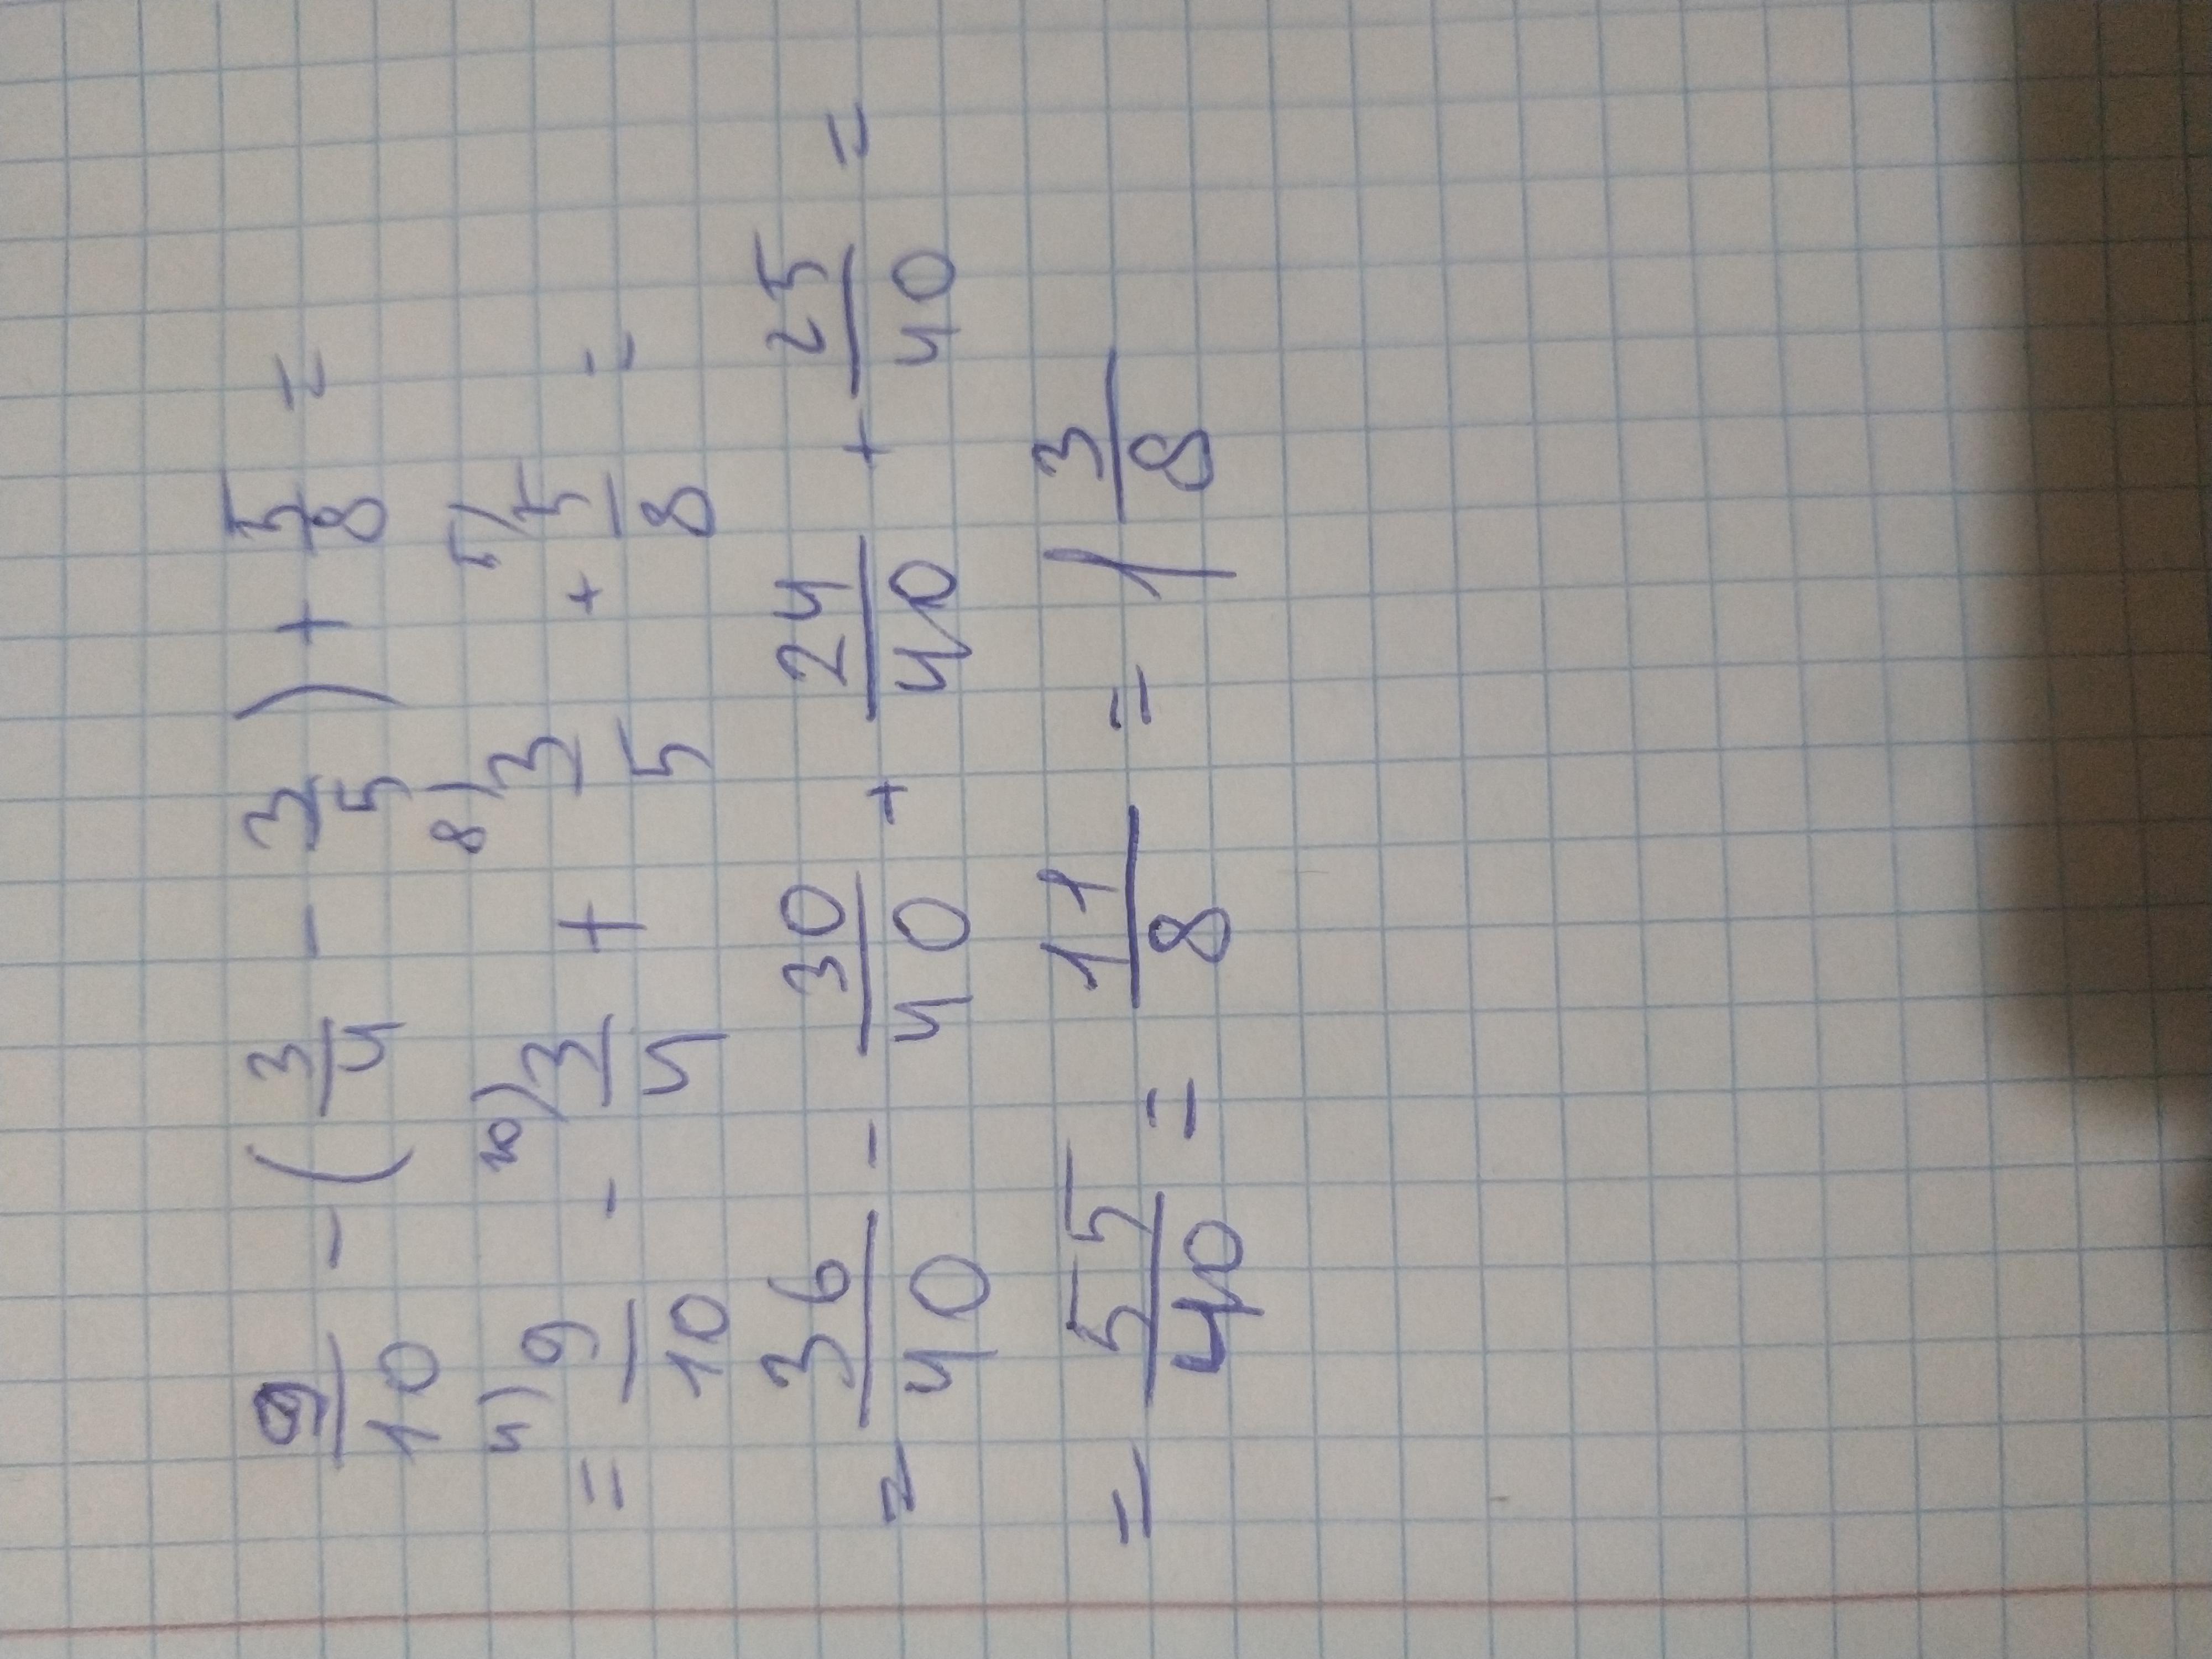 9/10 - (3/4 - 3/5) + 5/8 =
= 4) 9/10 - 10) 3/4 + 8) 3/5 + 5) 5/8 =
= 36/40 - 30/40 + 24/40 + 25/40 =
= 55/40 = 11/8 = 1 3/8